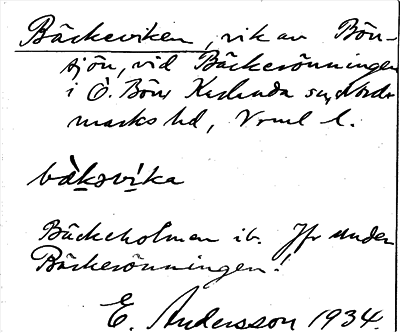 Bäckeviken, vik av Bön-
sjön, vid Bäckerönningen
i Ö. Bön, Karlanda sn, Nord-
marks hd, Vrml l.
bàksvi̍ka
Bäckeholmen ib. Jfr under
Bäckerönningen!
E. Andersson 1934.